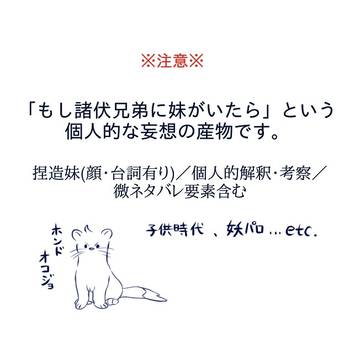 ※注意※
「もし諸伏兄弟に妹がいたら」という
個人的な妄想の産物です。
捏造妹(顔・台詞有り)／個人的解釈・考察／
微ネタバレ要素含む
子供時代、妖パロ…etc.
ホンド
オコジョ